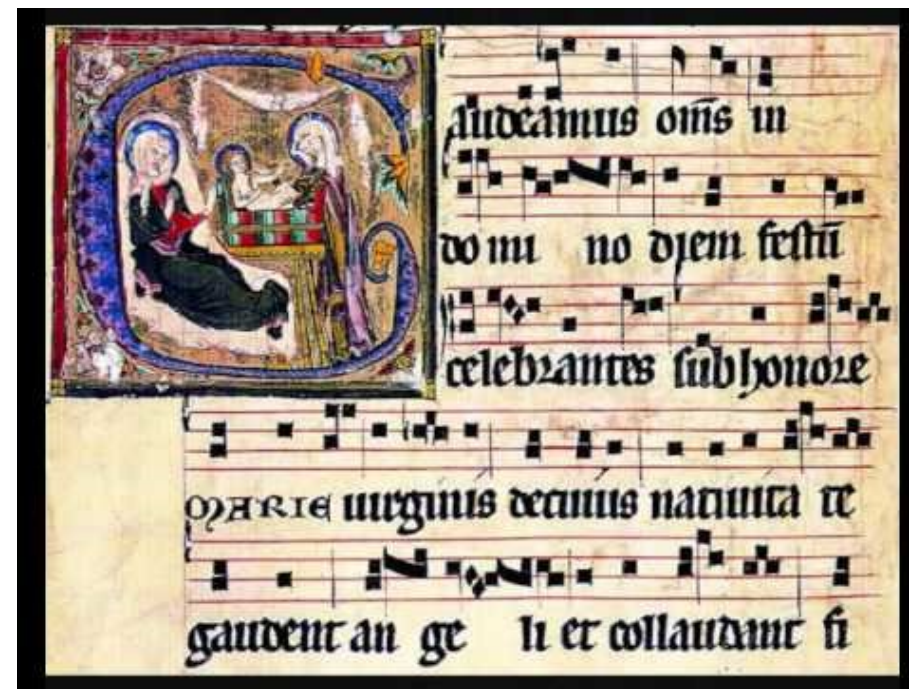 Gaudeamus om̄s in
do mi no diem festū
celebrantes sub honore
MARIE uirginis de cuiuis natiuita te
gaudent an ge li et collaudant fi